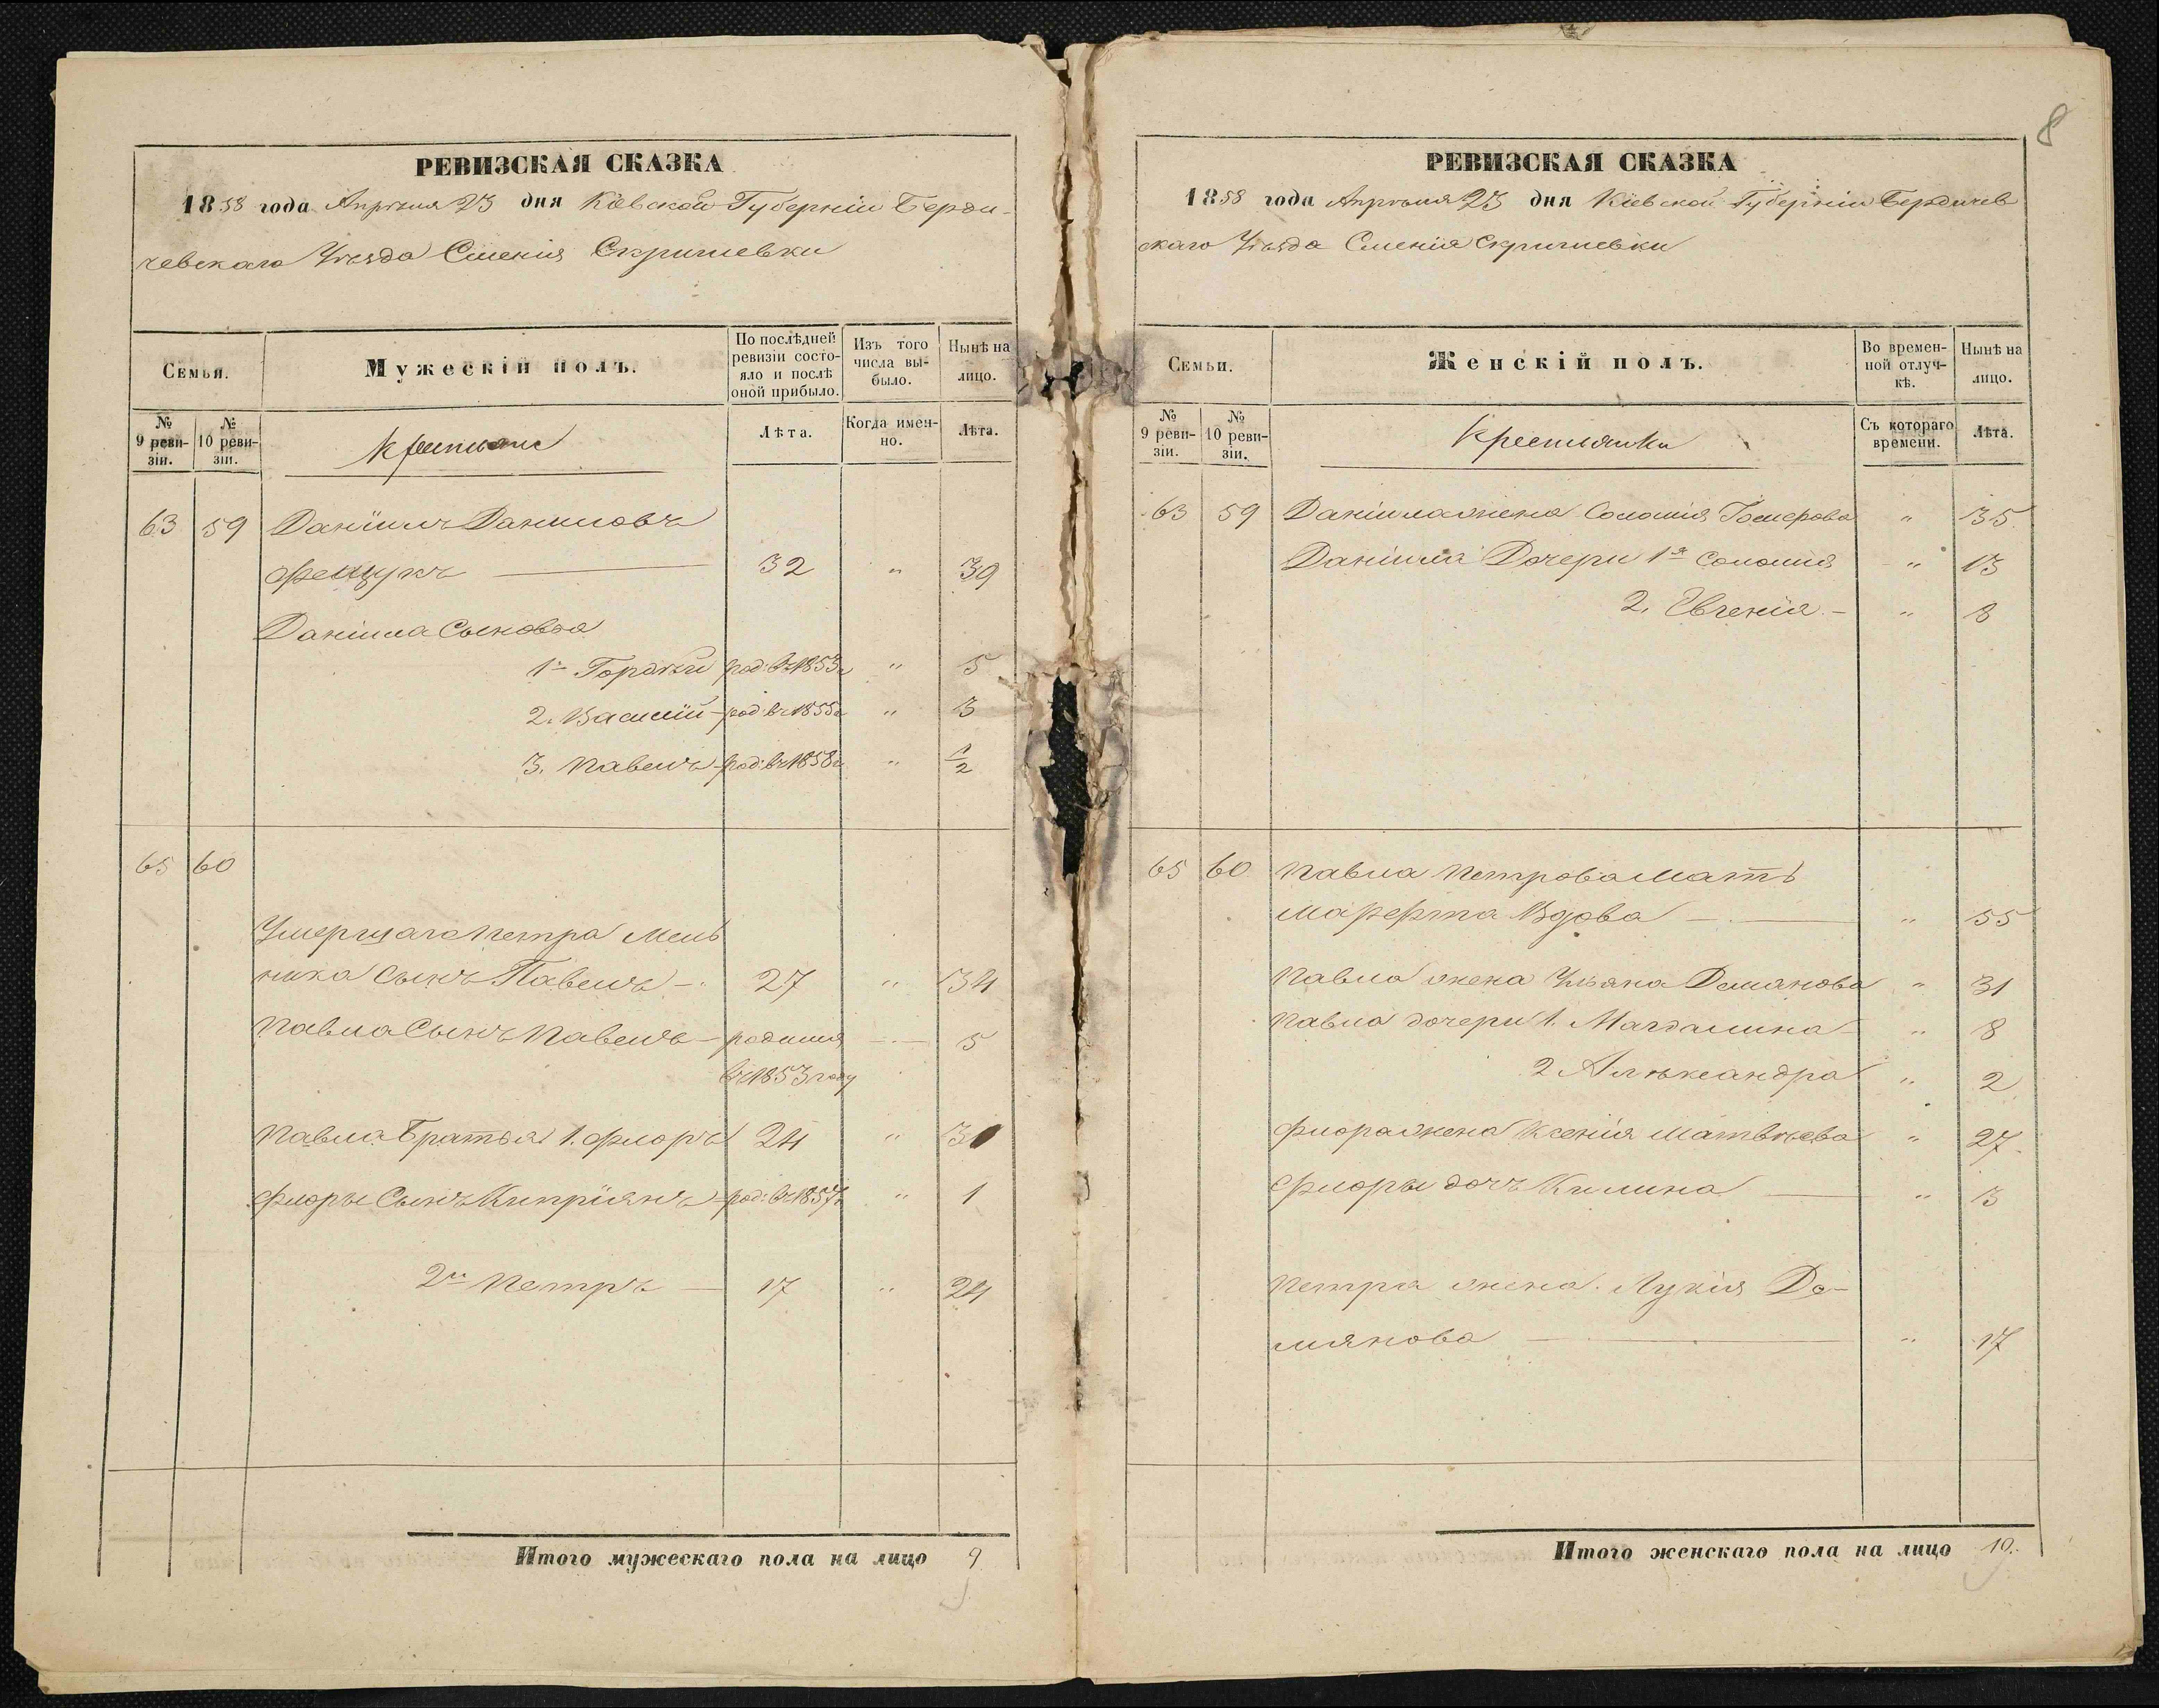 8
РЕВИЗСКАЯ СКАЗКА
1858 года Апрѣля 23 дня Кіевской Губерніи Берди-
чевскаго Уѣзда Имѣнія Скригилевки
Семьи.
Мужескій полъ.
По послѣдней ревизіи состояло и послѣ оной прибыло.
Изъ того числа выбыло.
Нынѣ на лицо.
№ 9 ревизіи.
№ 10 ревизіи.
Крестьяне
Лѣта.
Когда именно.
Лѣта.
63 59 Даніилъ Даниловъ
Фещукъ 32 " 39
Даніила Сыновья
1й Гордѣй род: въ 1853г " 5
2. Василій род: въ 1855г " 3
3. Павелъ род: въ 1858г " 1/2
65 60
Умершаго Петра Мель
ника Сынъ Павелъ 27 " 34
Павла Сынъ Павелъ родился 5
въ 1853 году
Павла Братья 1. Флоръ 24 " 31
Флоры Сынъ Кипріянъ род: въ 1857г " 1
2й Петръ 17 " 24
Итого мужескаго пола на лицо 9
РЕВИЗСКАЯ СКАЗКА
1858 года Апрѣля 23 дня Кіевской Губерніи Бердичев
скаго Уѣзда Имѣнія Скригилевки
Семьи.
Женскій полъ.
Во временной отлучкѣ.
Нынѣ на лицо.
№ 9 ревизіи.
№ 10 ревизіи.
Крестьянки
Съ котораго времени.
Лѣта.
63 59 Даніила жена Соломія Гомерова " 35
Даніила Дочери 1я Соломія " 13
2. Евгенія " 8
65 60 Павла Петрова Мать
Марфта Вдова " 55
Павла жена Ульяна Демянова " 31
Павла дочери 1. Магдалина " 8
2 Алѣксандра " 2
Флора жена Ксенія Матвѣева " 27
Флоры дочъ Килина " 3
Петра жена Лукія Де-
мянова " 17
Итого женскаго пола на лицо 10.